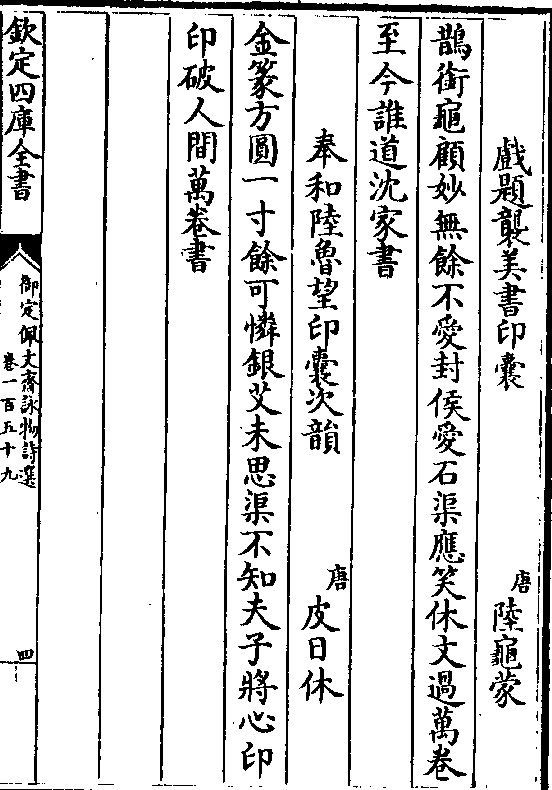 戲題襲美書印囊 唐 陸龜蒙
鵲銜龜顧妙無餘不愛封侯愛石渠應笑休文過萬卷
至今誰道沈家書
奉和陸魯望印囊次韻 唐 皮日休
金篆方圓一寸餘可憐銀艾未思渠不知夫子將心印
印破人間萬卷書
欽定四庫全書
御定佩文齋詠物詩選
卷一百五十九
四